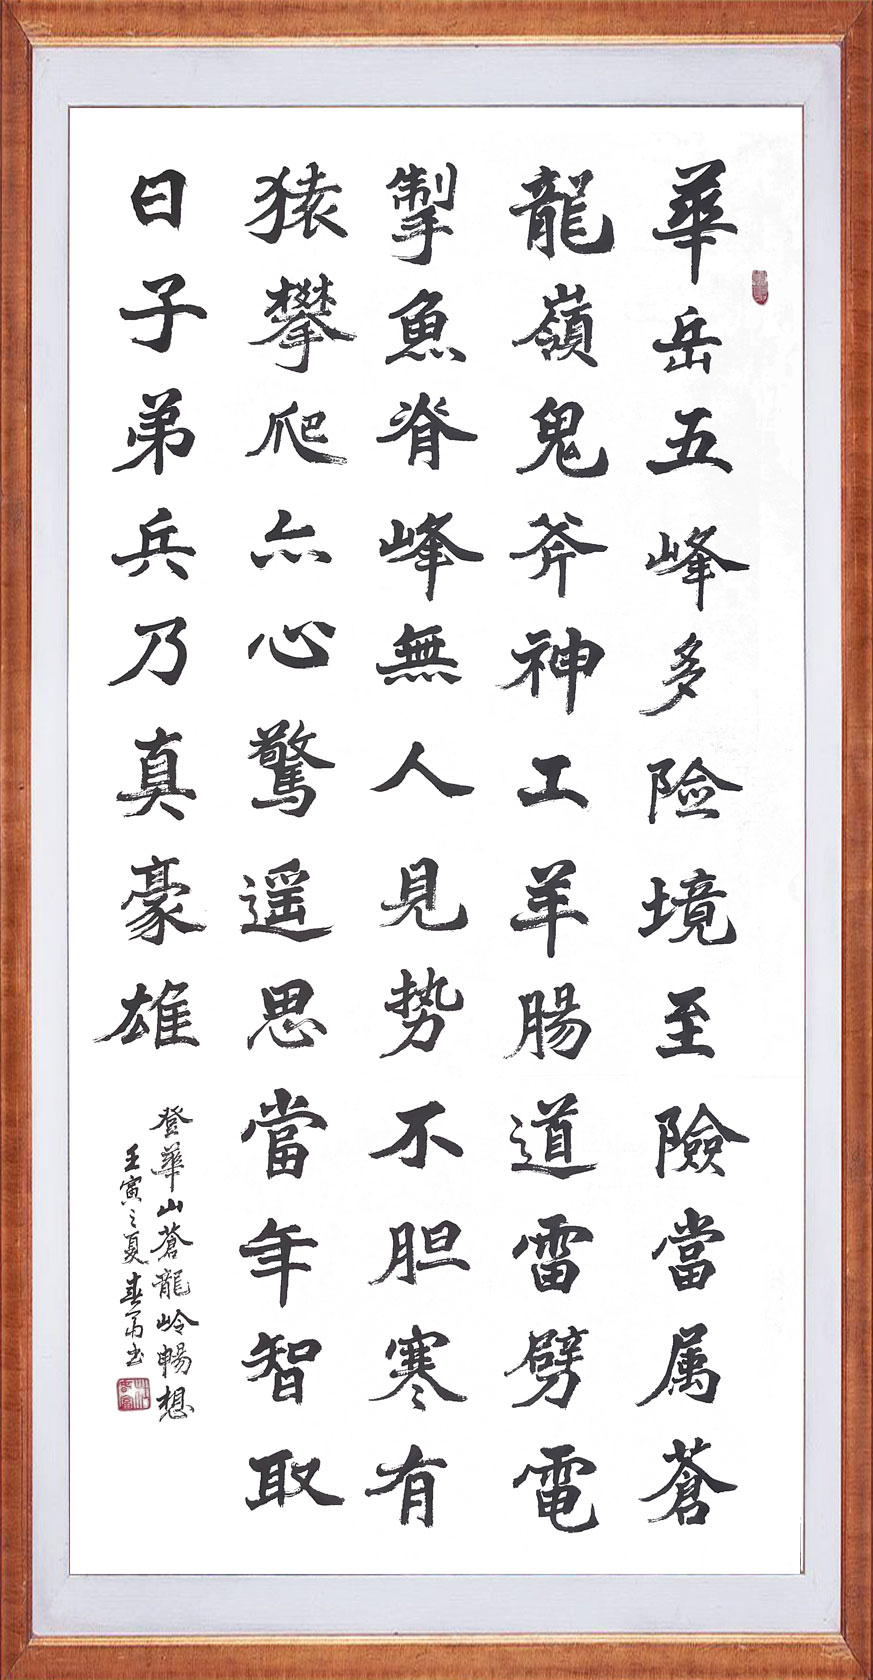 華岳五峰多險境至險當属蒼
龍嶺鬼斧神工羊腸道雷劈電
掣魚脊峰無人見势不胆寒有
猿攀爬亦心驚遥思當年智取
曰子弟兵乃真豪雄
登華山蒼龍岭暢想
壬寅之夏春弟书